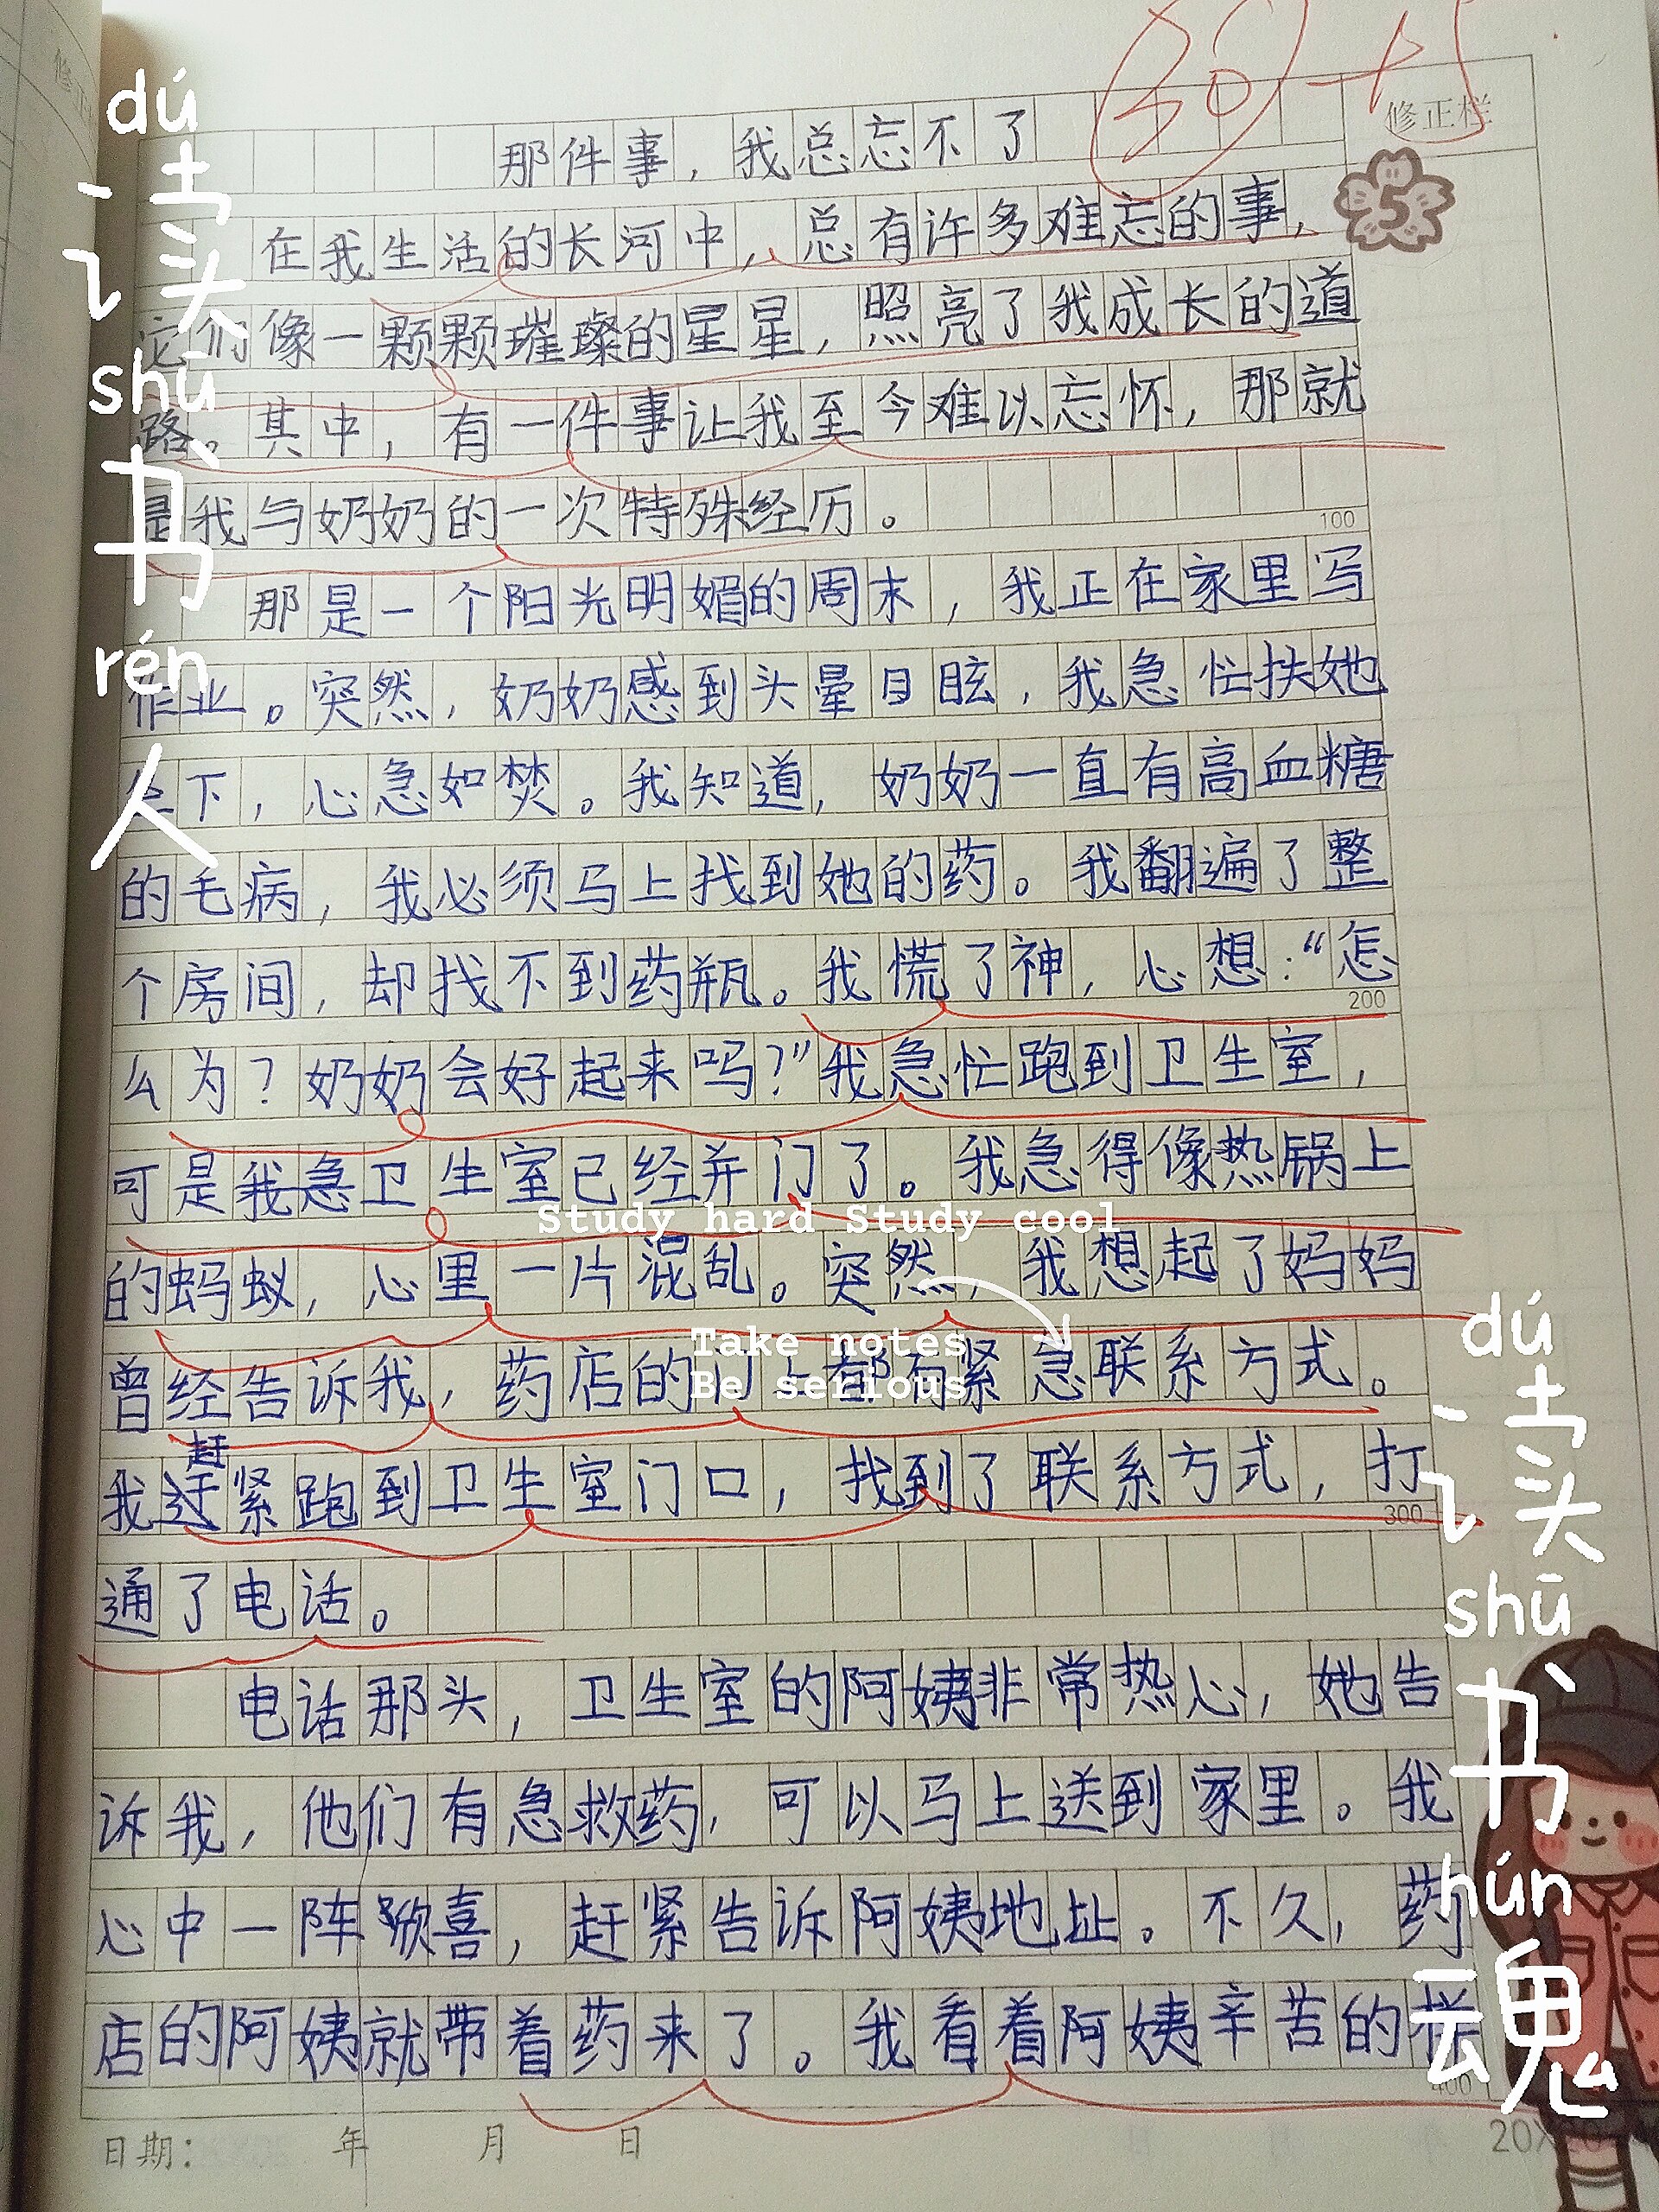 30+5
修正栏
那件事，我总忘不了
在我生活的长河中，总有许多难忘的事，
它们像一颗颗璀璨的星星，照亮了我成长的道
路。其中，有一件事让我至今难以忘怀，那就
是我与奶奶的一次特殊经历。
100
那是一个阳光明媚的周末，我正在家里写
作业。突然，奶奶感到头晕目眩，我急忙扶她
坐下，心急如焚。我知道，奶奶一直有高血糖
的毛病，我必须马上找到她的药。我翻遍了整
个房间，却找不到药瓶。我慌了神，心想：“怎
200
么为？奶奶会好起来吗？”我急忙跑到卫生室，
可是我急卫生室已经并门了。我急得像热锅上
的蚂蚁，心里一片混乱。突然，我想起了妈妈
曾经告诉我，药店的门上都有紧急联系方式。
赶
我紧跑到卫生室门口，找到了联系方式，打
300
通了电话。
电话那头，卫生室的阿姨非常热心，她告
诉我，他们有急救药，可以马上送到家里。我
心中一阵欣喜，赶紧告诉阿姨地址。不久，药
店的阿姨就带着药来了。我看着阿姨辛苦的样
400
日期： 年 月 日
20X
dú
读
shū
书
rén
人
Study hard Study cool
Take notes
Be serious
dú
读
shū
书
hún
魂
5